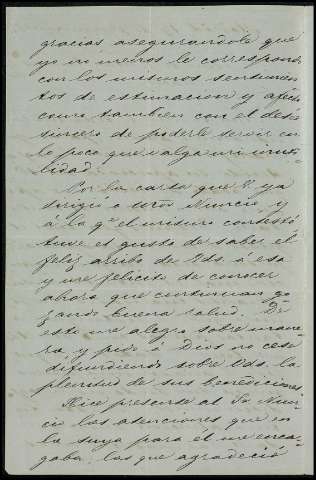 gracias asegurandole que
yo ni menos le correspondo
con los mismos sentimien
tos de estimacion y afecto
como tambien con el deseo
sincero de poderle servir en
lo poco que valga mi inuti-
lidad.
Por la carta que V. ya
dirigió a Nuncio y
á la qe el mismo contestó
tuve el gusto de saber el
feliz arribo de Vds. á esa
y me felicito de conocer
ahora que continuan go
zando buena salud. De
esto me alegro sobre mane
ra, y pido á Dios no cese
difundiendo sobre Vds. la
plenitud de sus bendiciones
Hice presente al Sr Nun
cio las atenciones que en
la suya para él me encar
gaba, las que agradeció